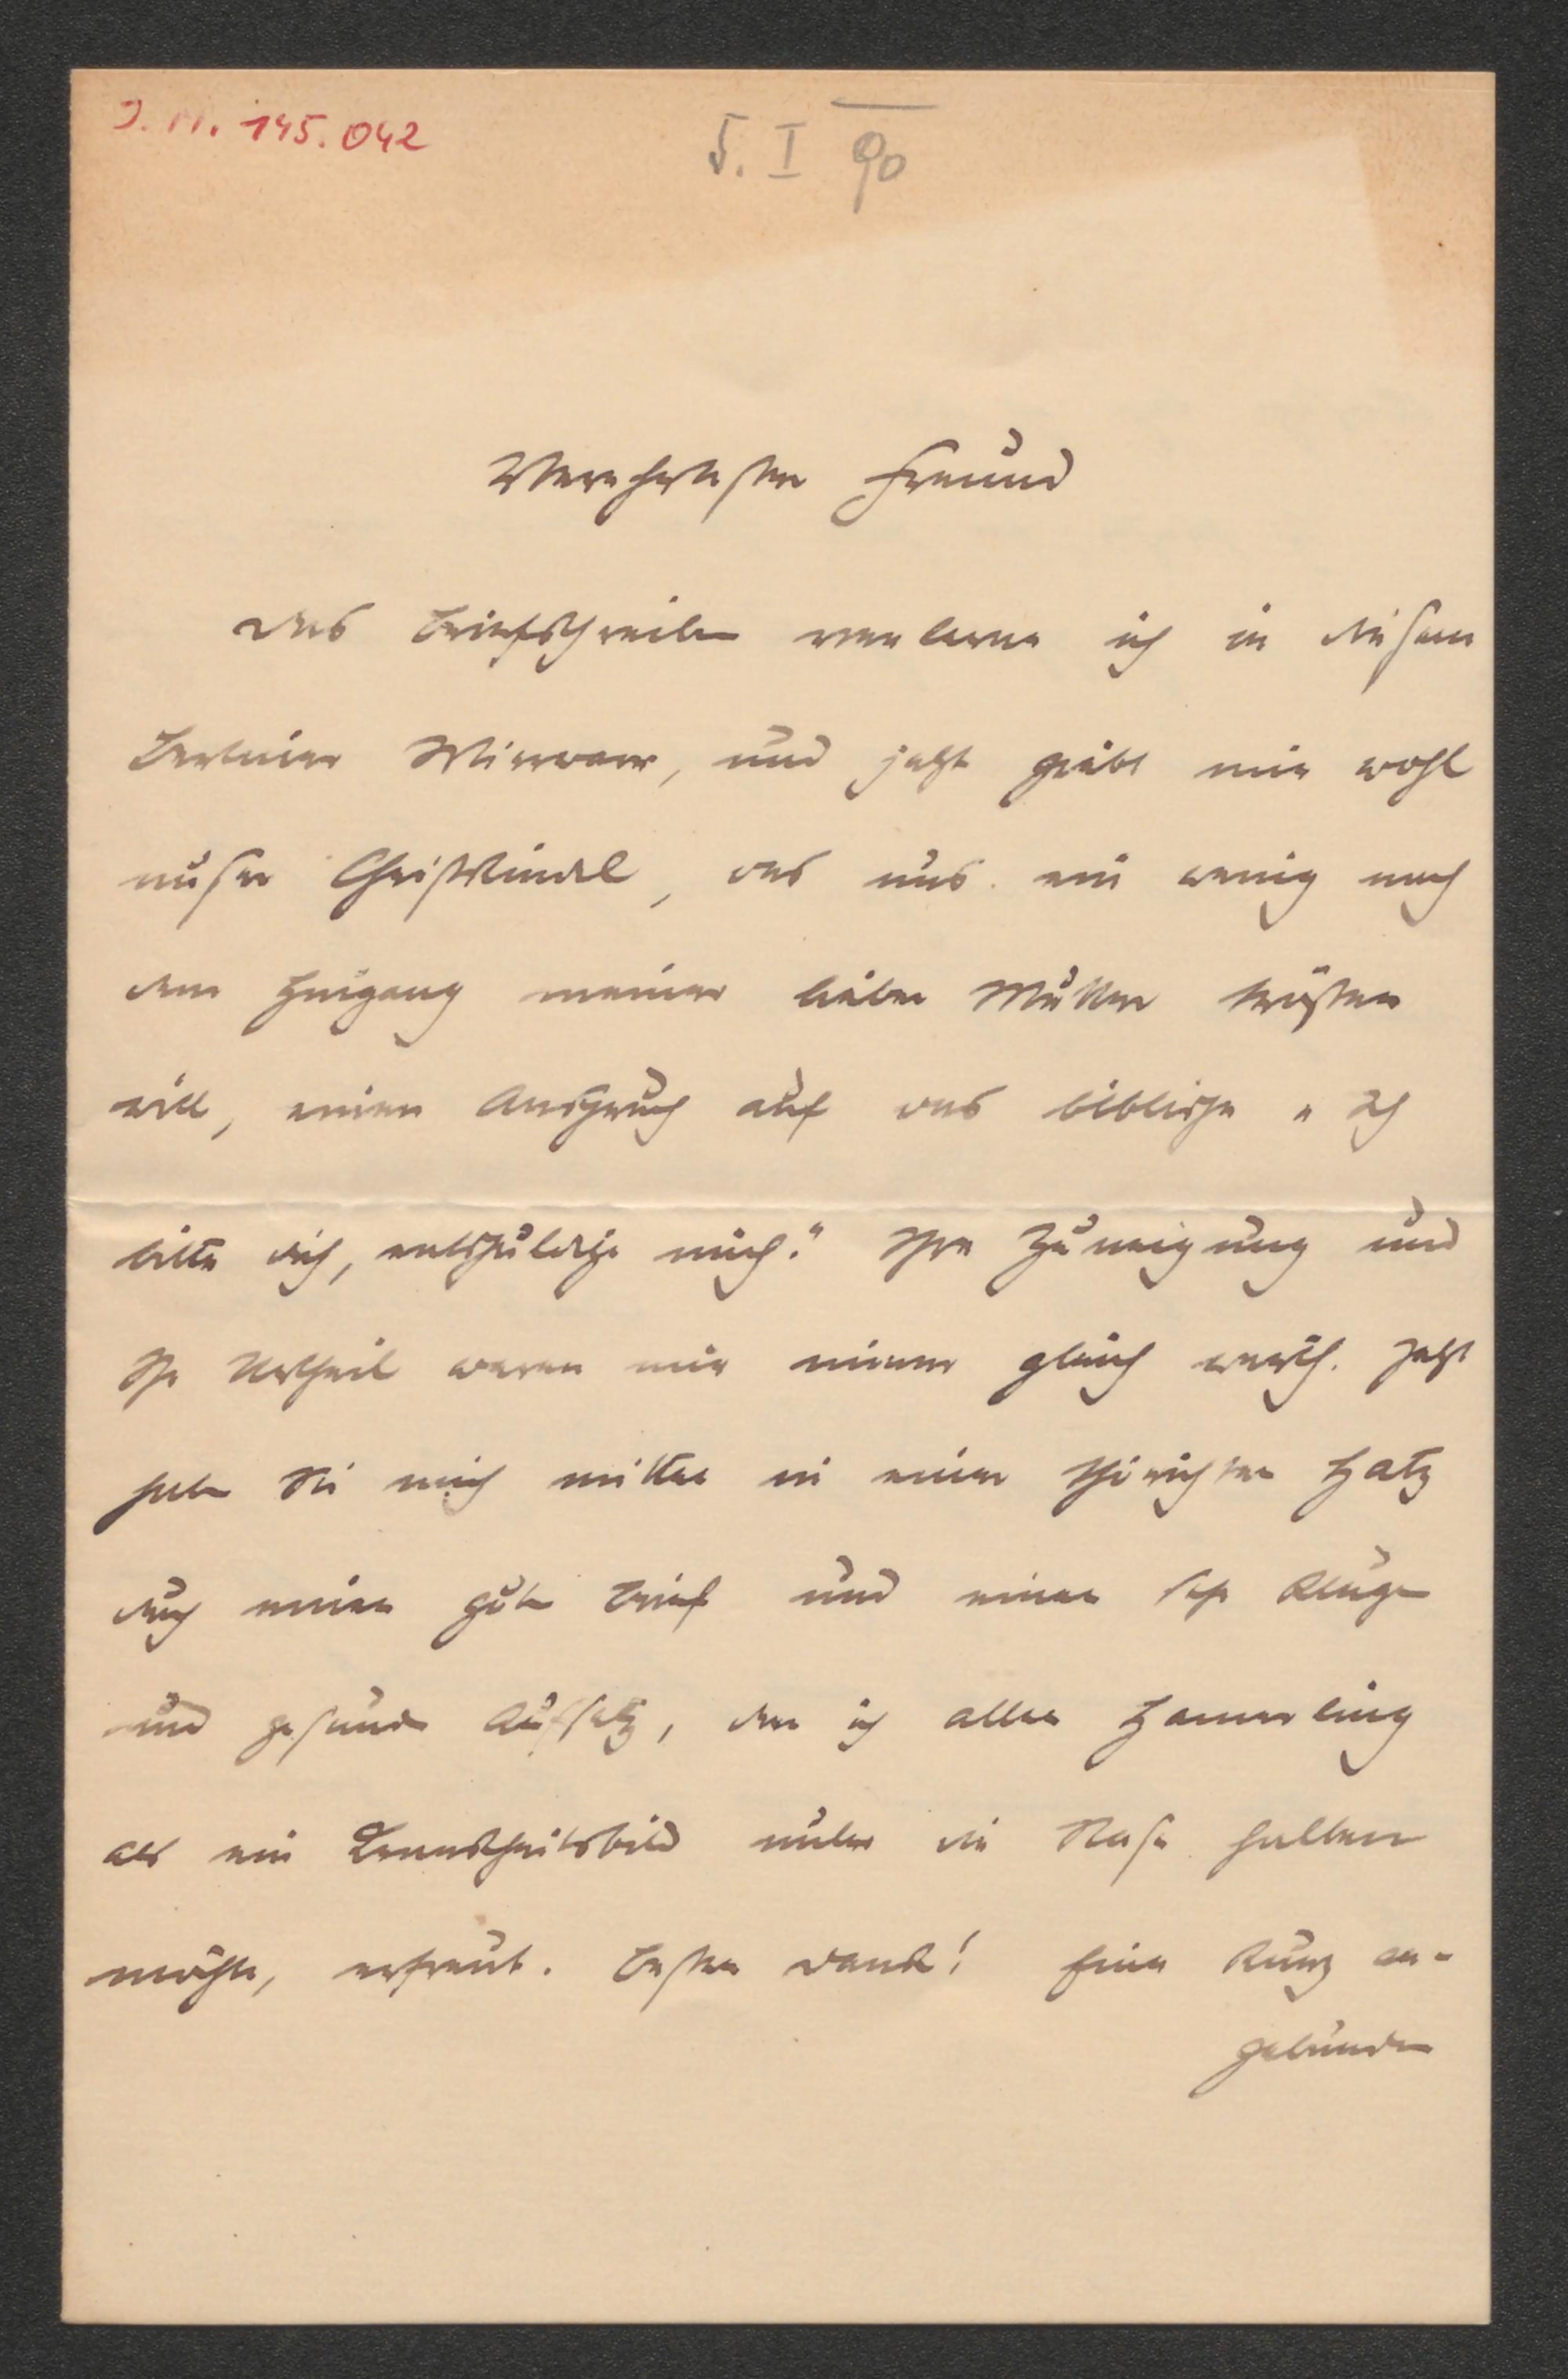 J. N. 145.042
5. I 90
Verehrtester Freund
das Briefschreiben verlerne ich in diesem
Berliner Wirrwarr, und jetzt giebt mir wohl
unser Christkindel, das uns ein wenig nach
dem Heimgang meiner lieben Mutter trösten
will, einen Anspruch auf das biblische „Ich
bitte dich, entschuldige mich." Ihre Zuneigung und
Ihr Urtheil waren mir immer gleich werth. Jetzt
haben Sie mich mitten in einer thörichten Hatz
durch einen guten Brief und einen sehr klugen
und gesunden Aufsatz, den ich allen Hamerling
als ein Krankheitsbild unter die Nase halten
möchte, erfreut. Besten Dank! Eine kurz an-
gebunden